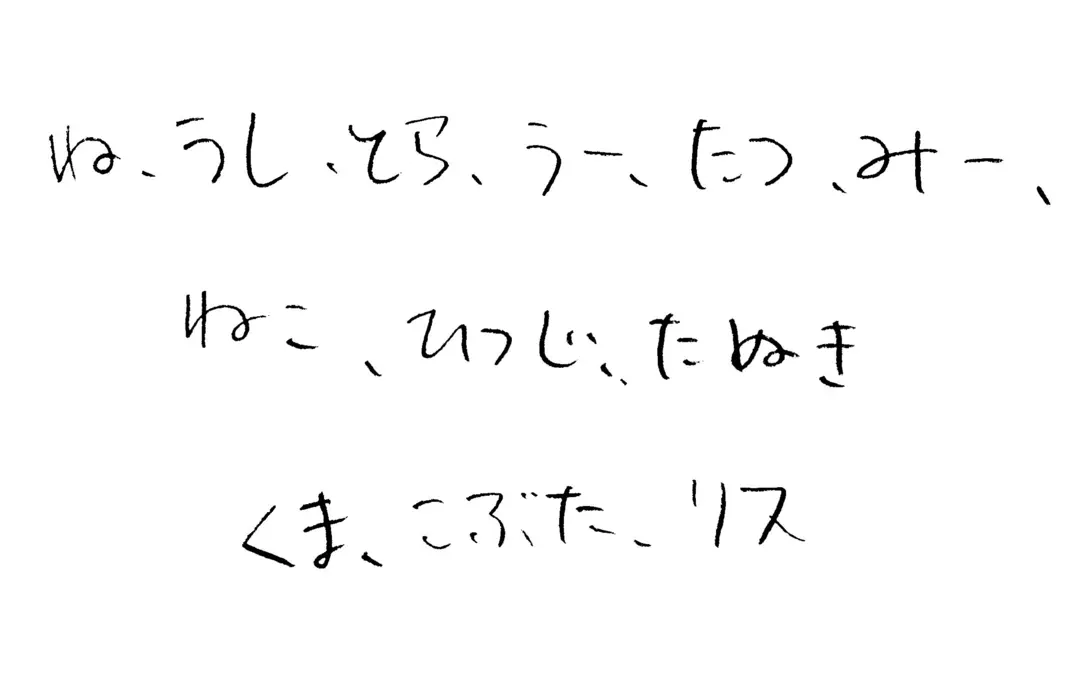 ね、うし、とら、うー、たつ、みー、
ねこ、ひつじ、、たぬき
くま、こぶた、リス